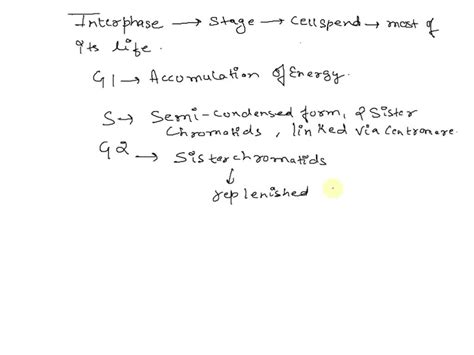 Interphase → Stage → Cell spend → most of
its life.
G1 → Accumulation of Energy.
S → Semi-condensed form, 2 Sister
Chromatids, linked via Centromare.
G2 → Sister chromatids
↓
replenished